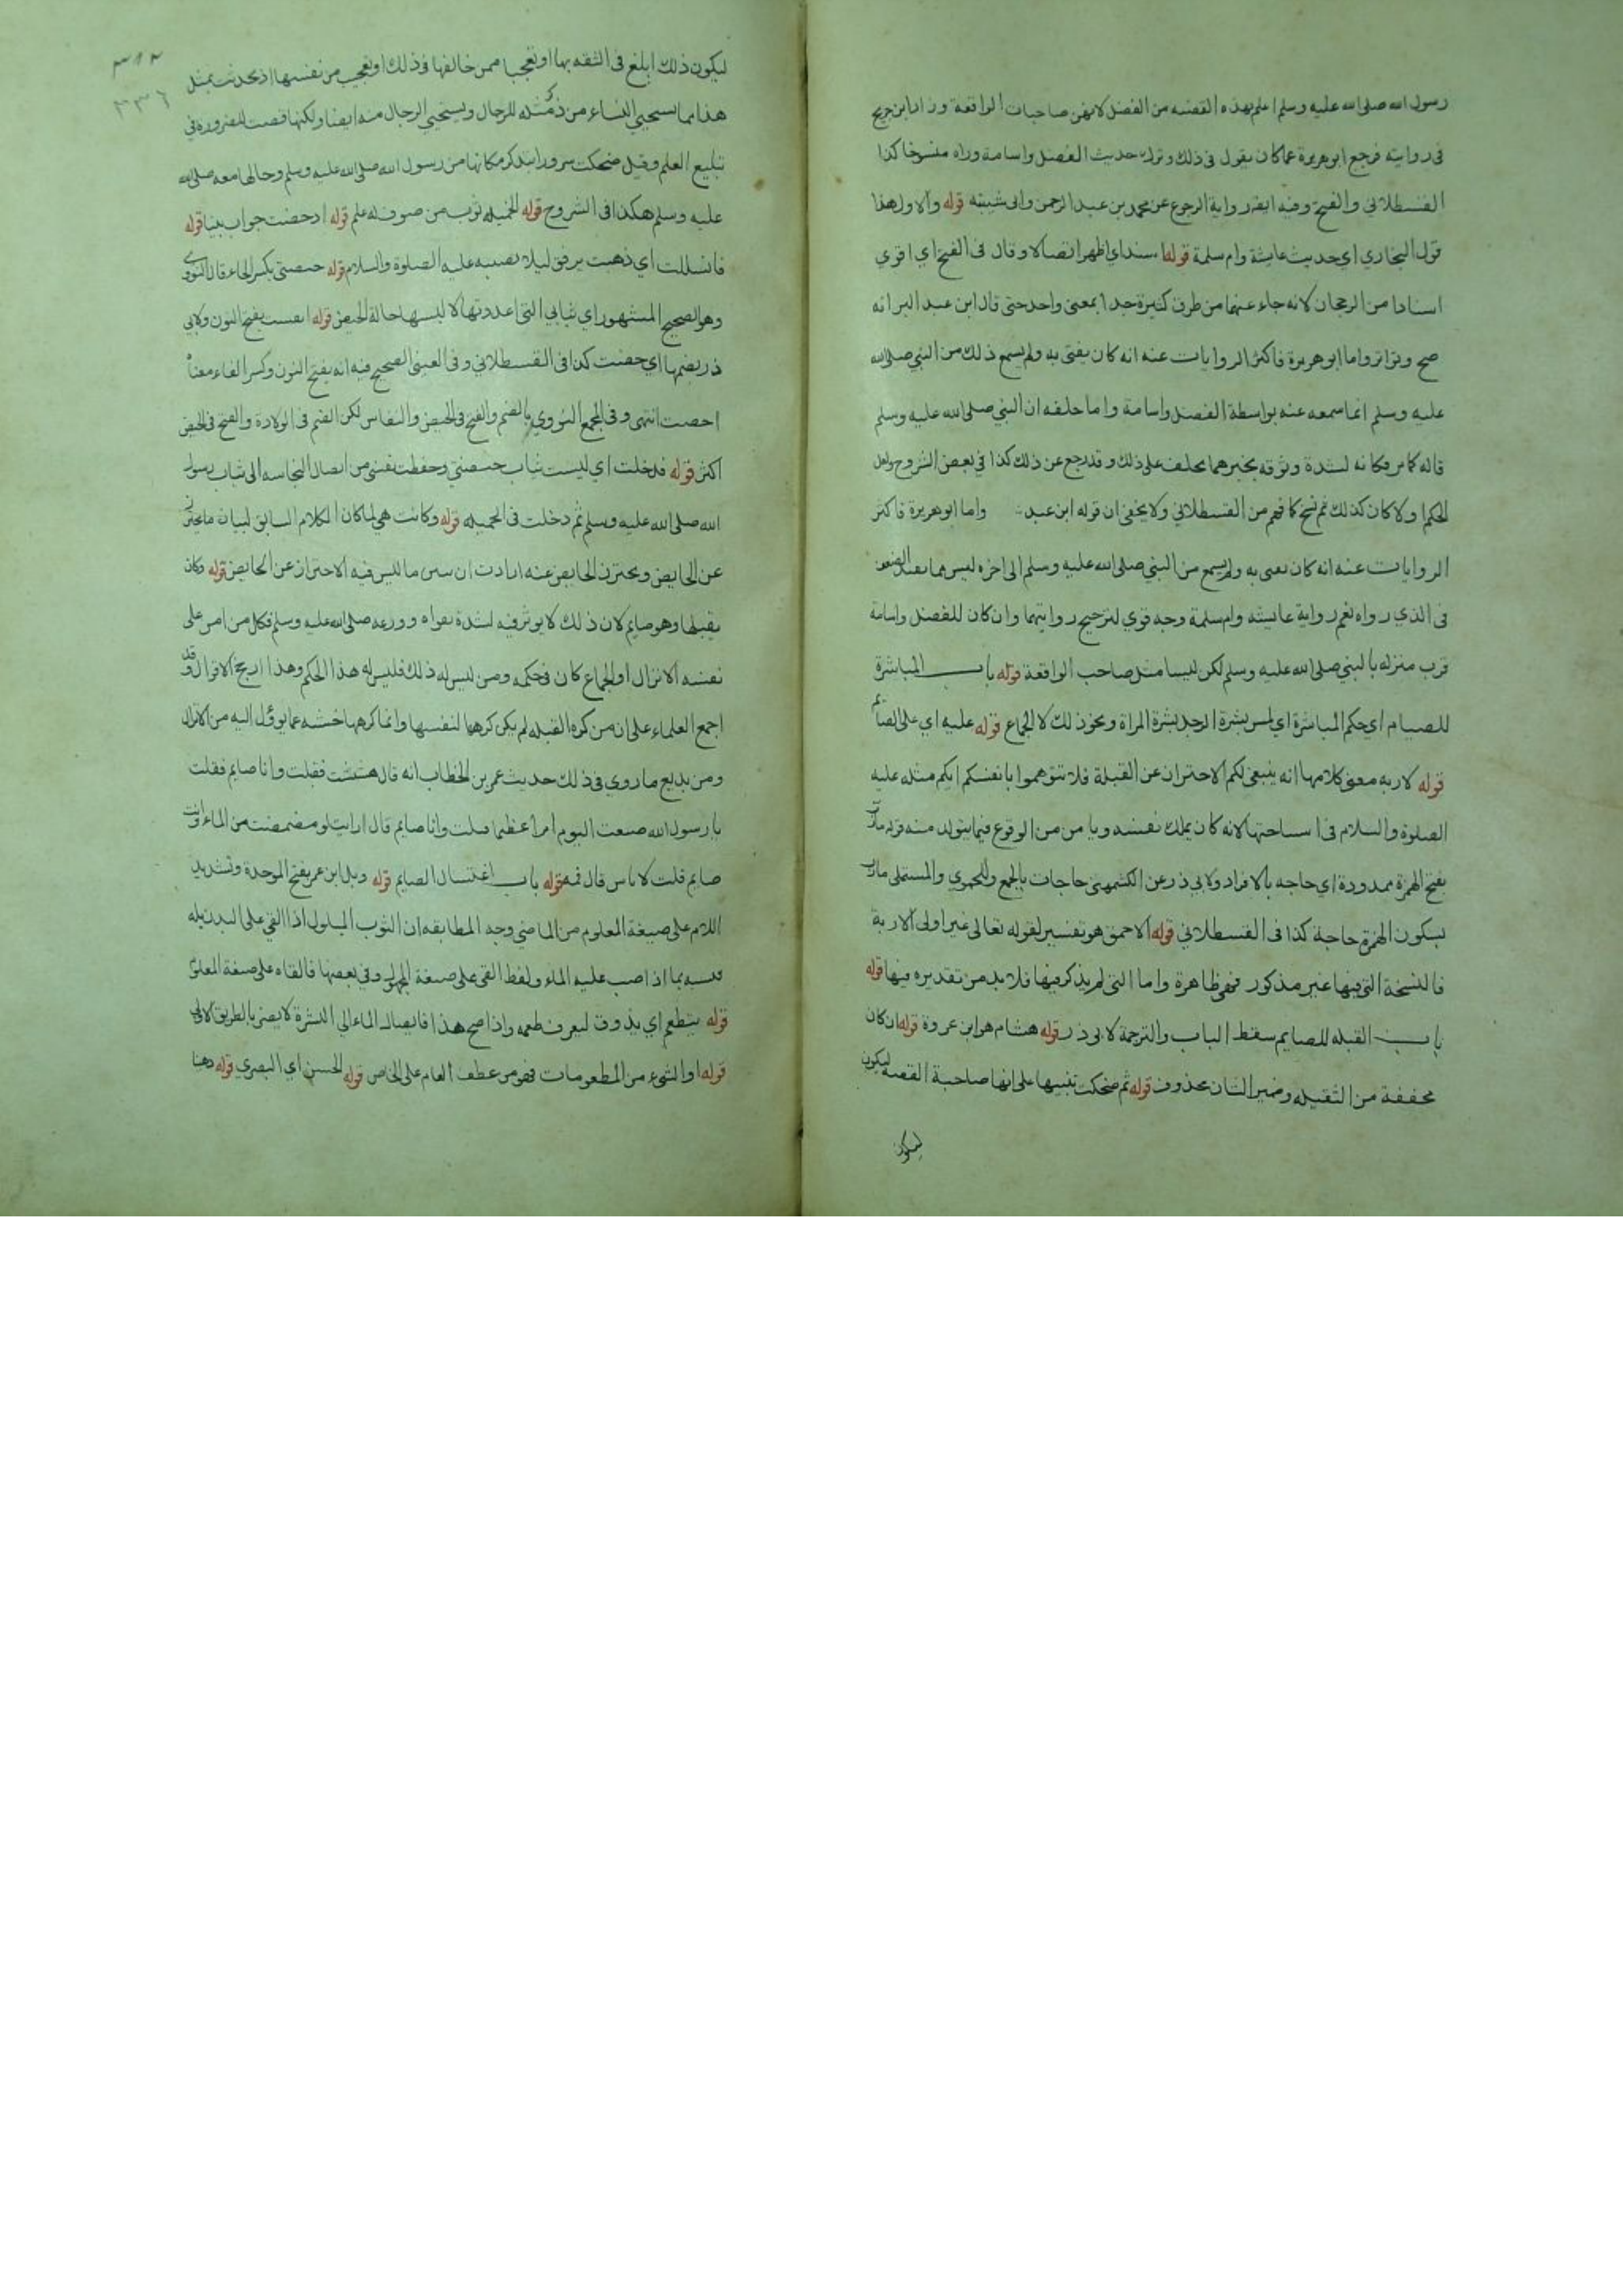 رسول الله صلى الله عليه وسلم اعلم بهذه القضيه من الفضل لانهن صاحبات الواقعة وزاد ابن جريج
فى روايته فرجع ابو هريرة عما كان يقول فى ذلك وترك حديث الفضل واسامة وراه منسوخا كذا
القسطلاني والفتح وفيه ايضر رواية الرجوع عن محمد بن عبد الرحمن وابى شيبته قوله والاول هذا
قول البخاري اي حديث عايشة وام سلمة قوله اسند اي اظهر اتصالا وقال فى الفتح اي اقوي
اسنادا من الرجحان لانه جاء عنهما من طرق كثيرة جدا بمعنى واحد حتى قال ابن عبد البر انه
صح وتواتر واما ابو هريرة فاكثر الروايات عنه انه كان يفتى به ولم يسمع ذلك من النبي صلى الله
عليه وسلم انما سمعه عنه بواسطة الفضل واسامة واما حلفه ان النبي صلى الله عليه وسلم
قاله كما مر فكانه لشدة وثوقه بخبرهما يحلف على ذلك وقد رجع عن ذلك كذا في بعض الشروح ولعل
الحكم اولا كان كذلك ثم نسخ كا فهم من القسطلاني ولا يخفى ان قوله ابن عبد واما ابو هريرة فاكثر
الروايات عنه انه كان يفتى به ولم يسمع من النبي صلى الله عليه وسلم الى اخره ليس مما يفيد الضعف
فى الذي رواه نعم رواية عايشه وام سلمة وجه قوي لترجيح روايتهما وان كان للفضل واسامة
قرب منزله بالنبي صلى الله عليه وسلم لكن ليسا مثل صاحب الواقعة قوله باب المباشرة
للصيام اي حكم المباشرة اي لمس بشرة الرجل بشرة المراة ونحو ذلك لا الجماع قوله عليه اي على الصايم
قوله لاربه معنى كلامها انه ينبغى لكم الاحتراز عن القبلة فلا تتوهموا بانفسكم انكم مثله عليه
الصلوة والسلام فى استباحتها لانه كان يملك نفسه ويا من من الوقوع فيما يتولد منه قوله مارب
بفتح الهمزة ممدودة اي حاجه بالافراد ولابي ذر عن الكشمهنى حاجات بالجمع وللحموي والمستملى مارب
بسكون الهمزة حاجة كذا فى القسطلاني قوله الاحمق هو تفسير لقوله تعالى غير اولى الاربة
فالنسخة التى فيها غير مذكور فهى ظاهرة واما التى لم يذكر فيها فلا بد من تقديره فيها قوله
باب القبله للصايم سقط الباب والترجمة لابى ذر قوله هشام هو ابن عروة قوله ان كان
مخففة من الثقيله وضمير الشان محذوف قوله ثم ضحكت تنبيها على انها صاحبة القصه ليكون
ليكون
٣١٢
٣٣٦
ليكون ذلك ابلغ فى الثقه بها او تعجبا ممن خالفها فى ذلك او تعجب من نفسها اذ تحدثت بمثل
هذا مما يستحيي النساء من ذكر مثله للرجال ويستحيي الرجال منه ايضا ولكنها قصت للضروره فى
تبليغ العلم وقيل ضحكت سرورا بتذكر مكانها من رسول الله صلى الله عليه وسلم وحالها معه صلى الله
عليه وسلم هكذا فى الشروح قوله الخميله ثوب من صوف له علم قوله اذ حضت جواب بينا قوله
فانسللت اي ذهبت برفق ليلا تصيبه عليه الصلوة والسلام قوله حيضتى بكسر الحاء قال النووى
وهو الصحيح المشهور اي ثيابي التى اعددتها لالبسها حالة الحيض قوله انفست بفتح النون ولابي
ذر بضمها اي حضت كذا فى القسطلاني وفى العينى الصحيح فيه انه بفتح النون وكسر الفاء معناه
احضت انتهى وفى المجمع النووي بالضم والفتح فى الحيض والنفاس لكن الضم فى الولادة والفتح فى الحيض
اكثر قوله فدخلت اي لبست ثياب حيضتي وحفظت نفسي من ايصال النجاسه الى ثياب رسول
الله صلى الله عليه وسلم ثم دخلت فى الخميله قوله وكانت هي لما كان الكلام السابق لبيان ما يعتزل
عن الحايض ويحترز الحايض عنه ارادت ان تبين ما ليس فيه الاحتراز عن الحايض قوله وكان
يقبلها وهو صايم لان ذلك لا يوثر فيه لشدة تقواه وورعه صلى الله عليه وسلم فكل من امن على
نفسه الانزال او الجماع كان فى حكمه ومن ليس له ذلك فليس له هذا الحكم وهذا ارجح الاقوال وقد
اجمع العلماء على ان من كره القبله لم يكن كرهها لنفسها وانما كرهها خشيه عما يوؤل اليه من الانزال
ومن بديع ما روي فى ذلك حديث عمر بن الخطاب انه قال هششت فقبلت وانا صايم فقلت
يا رسول الله صنعت اليوم امرا عظيما قبلت وانا صايم قال ارايت لو مضمضت من الماء وانت
صايم قلت لا باس قال فمه قوله باب اغتسال الصايم قوله وبل ابن عمر بفتح الموحدة وتشديد
اللام على صيغة المعلوم من الماضي وجه المطابقه ان الثوب المبلول اذا القي على البدن يبله
فيشبه بما اذا صب عليه الماء ولفظ القى على صيغة المجهول وفي بعضها فالقاه على صيغة المعلوم
قوله يتطعم اي يذوق ليعرف طعمه واذا صح هذا فايصال الماء الي البشرة لا يضر بالطريق الاولى
قوله او الشىء من المطعومات فهو من عطف العام على الخاص قوله الحسن اي البصري قوله دهنا